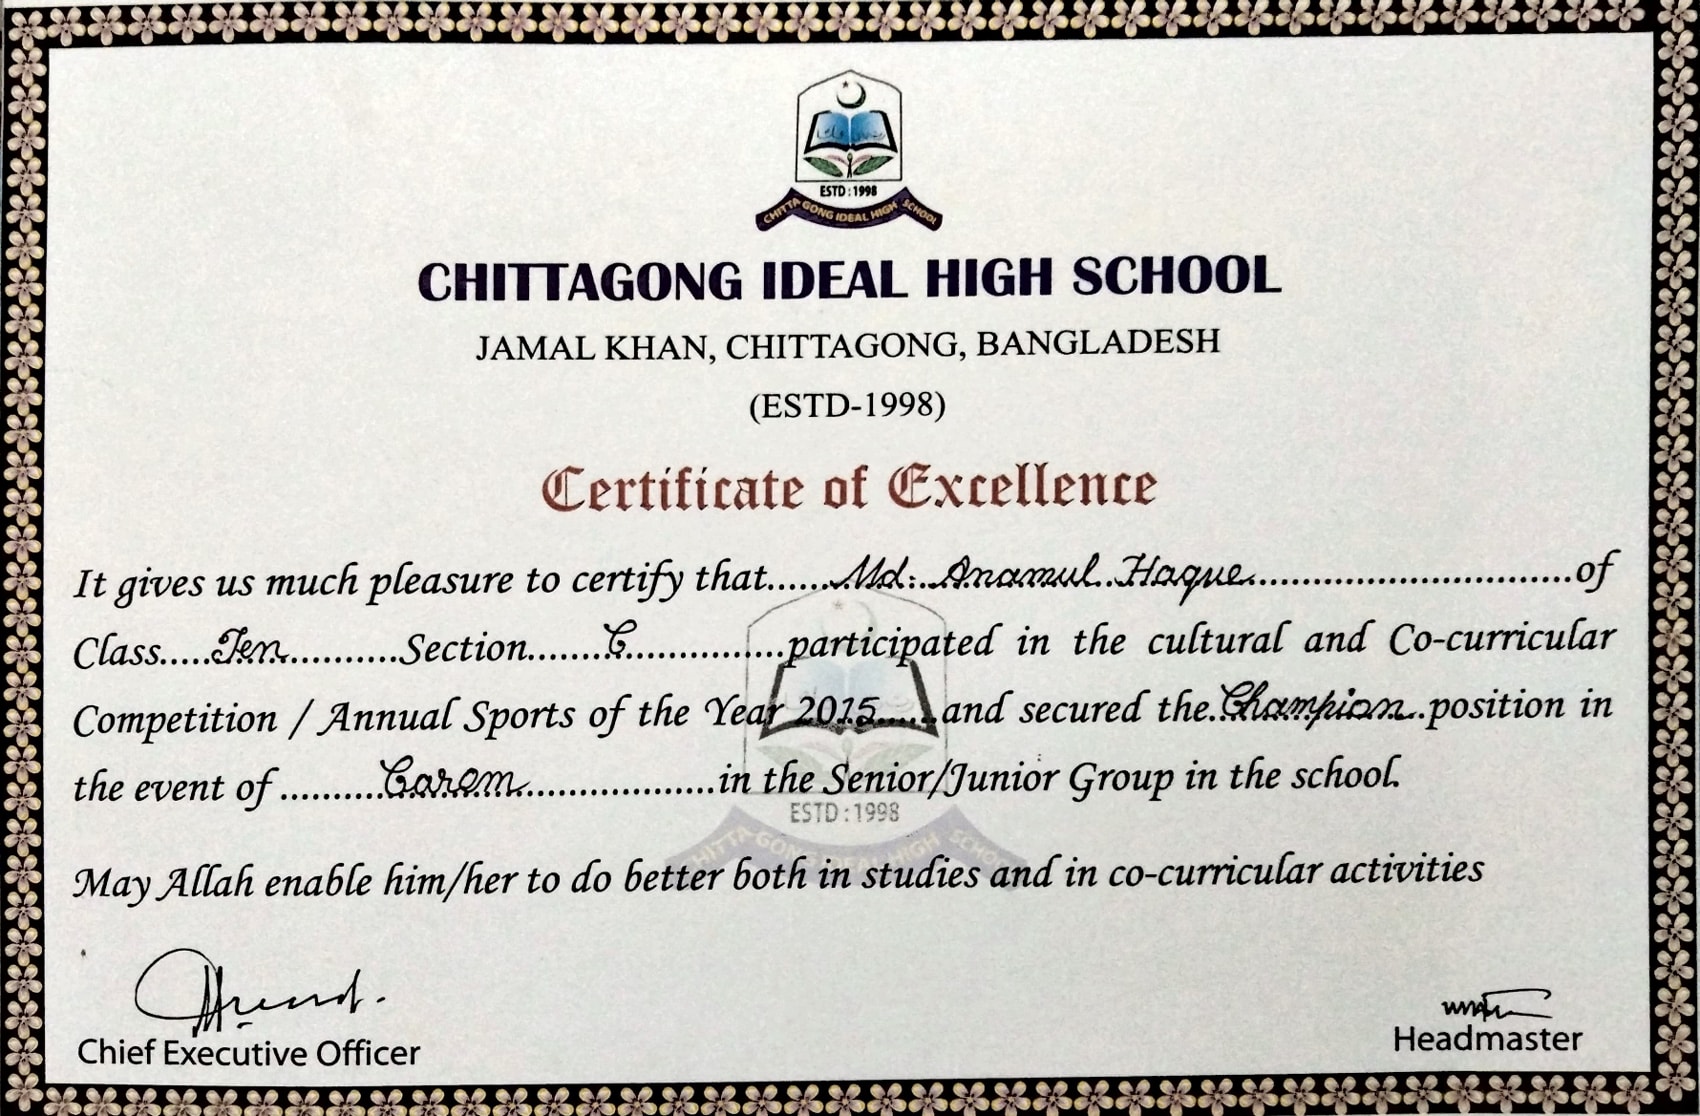 ESTD : 1998
CHITTAGONG IDEAL HIGH SCHOOL
CHITTAGONG IDEAL HIGH SCHOOL
JAMAL KHAN, CHITTAGONG, BANGLADESH
(ESTD-1998)
Certificate of Excellence
It gives us much pleasure to certify that......Md. Anamul Haque..............................of
Class.....Ten...........Section.......C...............participated in the cultural and Co-curricular
Competition / Annual Sports of the Year 2015......and secured the..Champion..position in
the event of ..........Carom...................in the Senior/Junior Group in the school.
ESTD : 1998
CHITTAGONG IDEAL HIGH SCHOOL
May Allah enable him/her to do better both in studies and in co-curricular activities
Chief Executive Officer
Headmaster